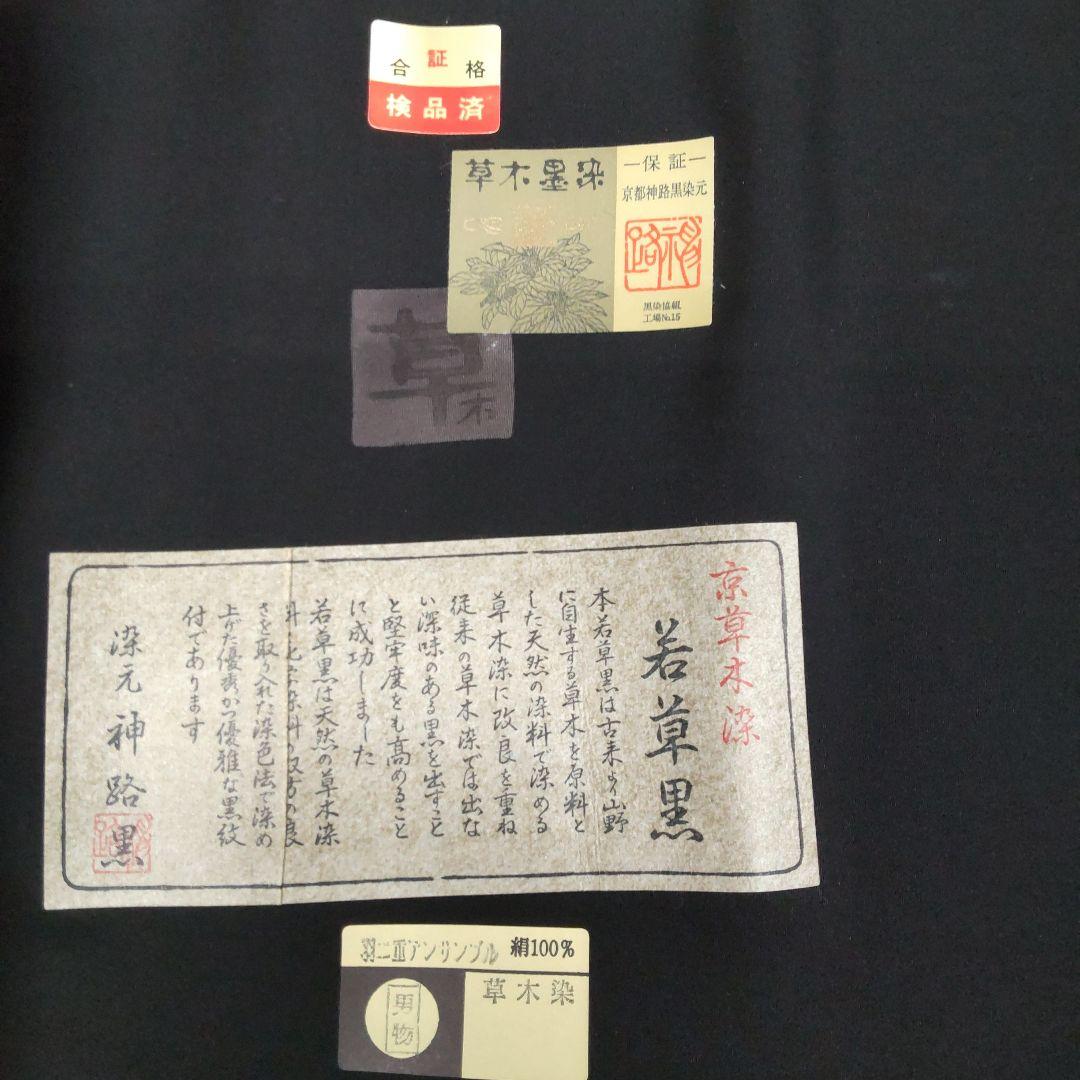 合 証 格
検品済
草木墨染
―保証―
京都神路黒染元
黒染協組
工場No.15
草木
京草木染
若草黒
本若草黒は古来より山野
に自生する草木を原料と
した天然の染料で染める
草木染に改良を重ね
従来の草木染では出な
い深味のある黒を出すこと
と堅牢度をも高めること
に成功しました
若草黒は天然の草木染
料と
染料の双方の良
さを取り入れた染色法で染め
上げた優秀かつ優雅な黒紋
付であります
染元 神路黒
羽二重アンサンブル 絹100%
男物
草木染